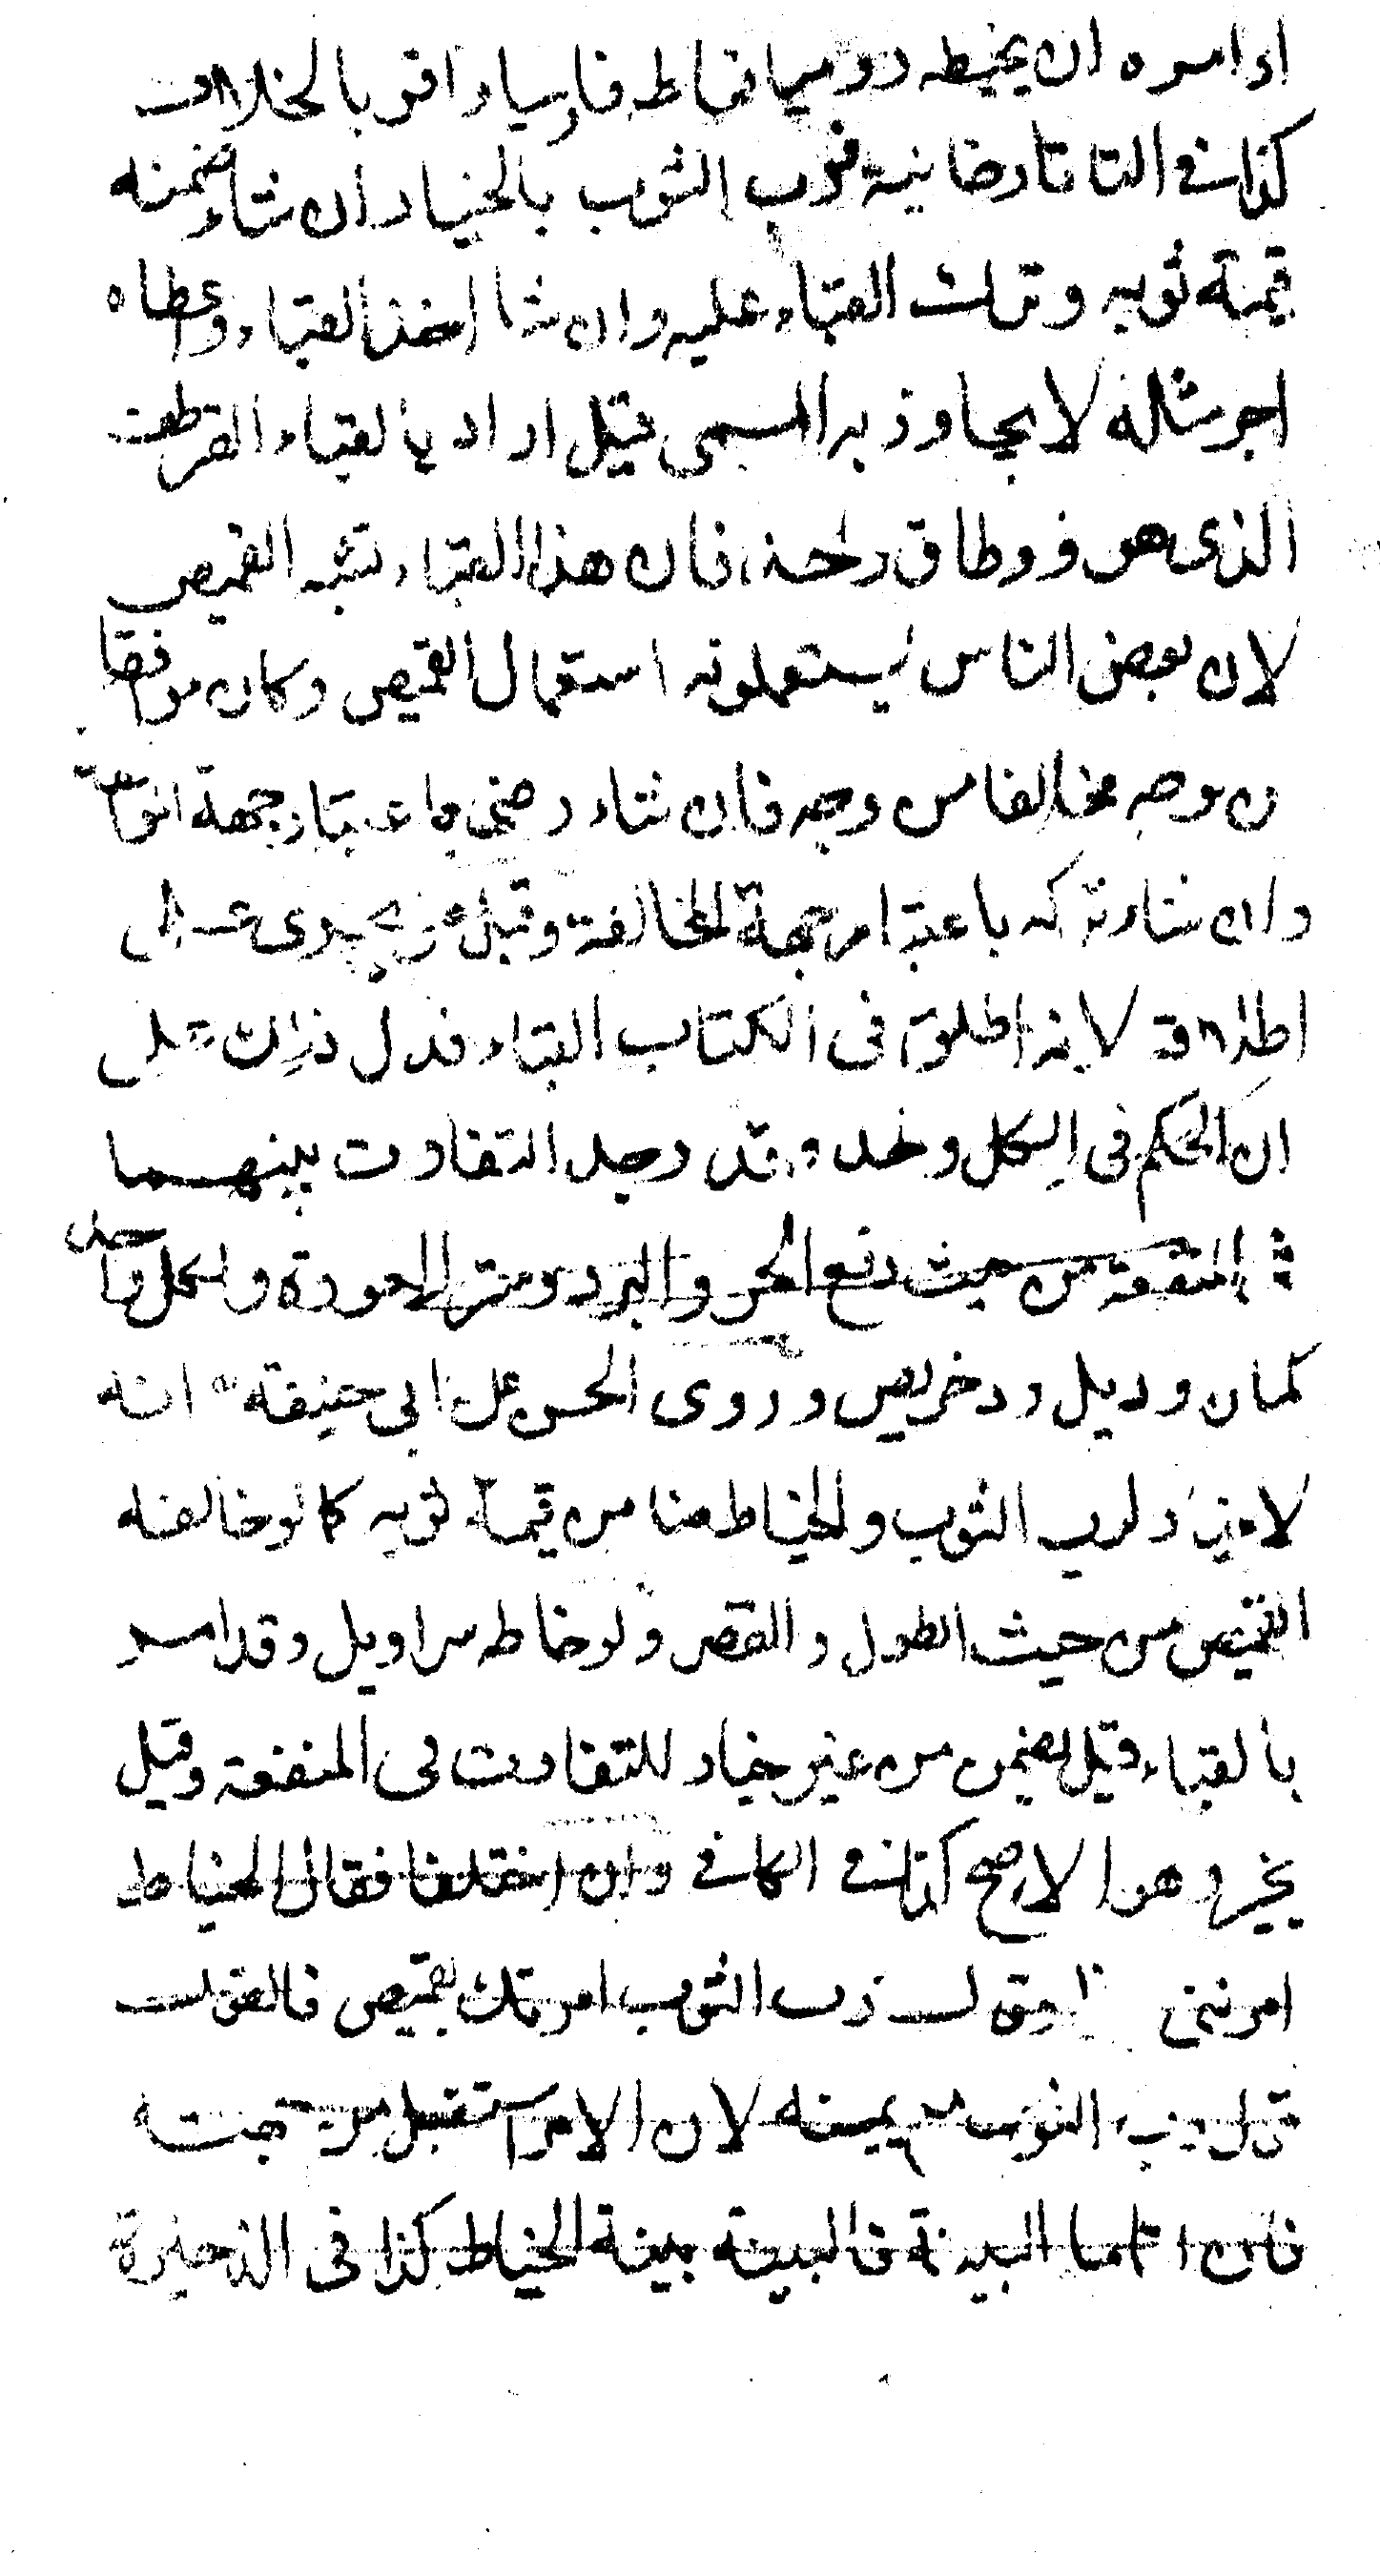 اذا امره ان يخيطه روميا فخاط فارسيا و اقر بالخلاف
كذا في التاتارخانية فرب الثوب بالخيار ان شاء ضمنه
قيمة ثوبه وترك القباء عليه وان شا اخذ القباء واعطاه
اجر مثله لا يجاوز به المسمى قيل اراد بالقباء القرطق
الذى هو ذو طاق واحد فان هذا القباء يشبه القميص
لان بعض الناس يستعملونه استعمال القميص وكان موافقا
من وجه مخالفا من وجه فان شاء رضى باعتبار جهة الموافقة
وان شاء تركه باعتبار جهة المخالفة وقيل يجرى على
اطلاقه لانه اطلق فى الكتاب القباء فدل ذلك على
ان الحكم فى الكل واحد وقد وجد التفاوت بينهما
في المنفعة من حيث دفع الحر والبرد وستر العورة ولكل واحد
كمان وديل ودخريص وروى الحسن عن ابى حنيفة انه
لا خيار لرب الثوب والخياط ضامن قيمة ثوبه كما لو خالفه
القميص من حيث الطول والقصر ولو خاطه سراويل وقد امر
بالقباء قيل يضمن من غير خيار للتفاوت فى المنفعة وقيل
يخير وهو الاصح كذا في الكافي وان اختلفا فقال الخياط
امرتنى يقول رب الثوب امرتك بقميص فالقول
قول رب الثوب مع يمينه لان الامر استقبل من جهته
فان اقاما البينة فالبينة بينة الخياط كذا فى الذخيرة